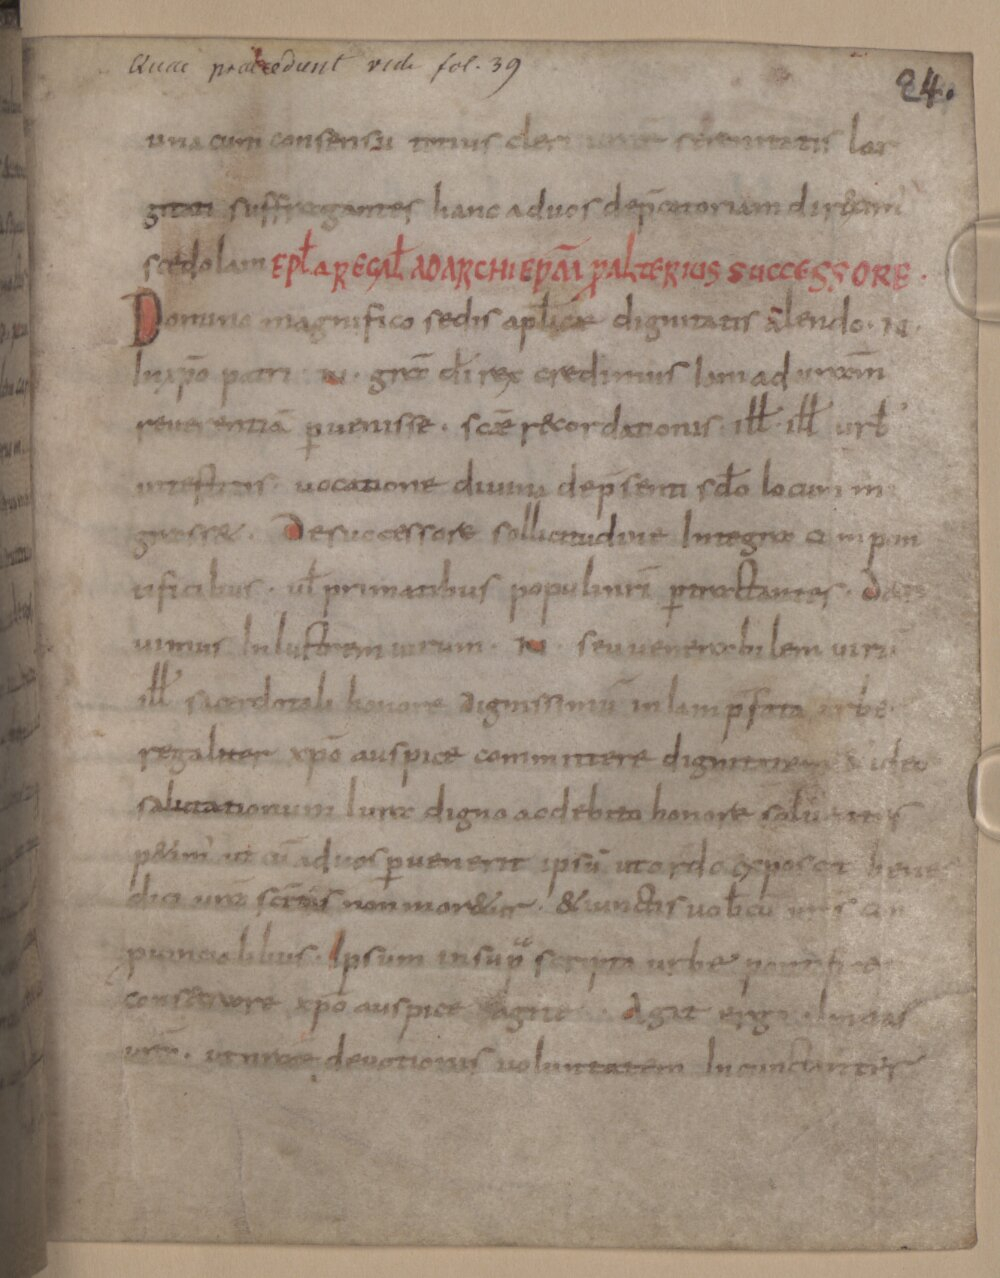 Quae praecedunt vide fol. 39
24.
una cum consensu totius cleri serenitatis lar
gitati suffragantes hanc ad uos dep̄catoriam direxim'
scedolam EPL̄A REGAL̄ AD ARCHIEPM̄ p ALTERIUS SUCCESSORE.
Domino magnifico sedis apl̄icae dignitatis colendo. N.
In xp̄o patri. N. grā dī rex credimus Iam ad urām
reuerentiā puenisse. scae recordationis. ill̄. ill̄ urb'
antestitis. uocatione diuina dep̄senti scl̄o locum m
grasse. De successore sollicitudine Integra cū pon
tificibus. ul̄ primatibus populi nr̄i ptractantes. Decre
uimus Inlustrem uirum. N. seu uenerabilem uirū
ill̄ sacerdotali honore dignissimū in Iam p̄fata urbe
regaliter xp̄o auspice committere dignitatem & ideo
salutationum Iura digno ac debito honore soluentes
petim' ut cū ad uos peruenerit ipsū ut ordo exposcit bene
dici urā scītas non moretur. & iunctis uobcū uris con
prouincialibus. Ipsum in sup̄ scripta urbe pontifice
consecrare xp̄o auspice. Agat ergo almitas
urā. ut nrae deuotionis uoluntatem Incunctanter